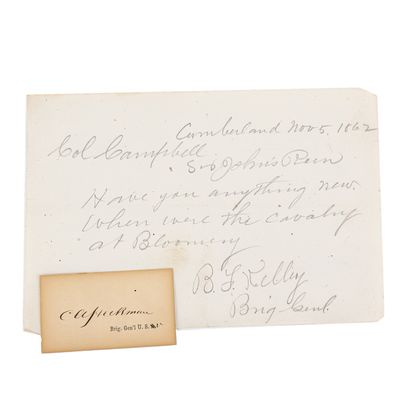 Cumberland Nov 5, 1862
Col Campbell
Sir John's Run
Have you anything new.
When were the cavalry
at Bloomery
B. F. Kelley
Brig Genl.
Brig. Gen'l U. S.